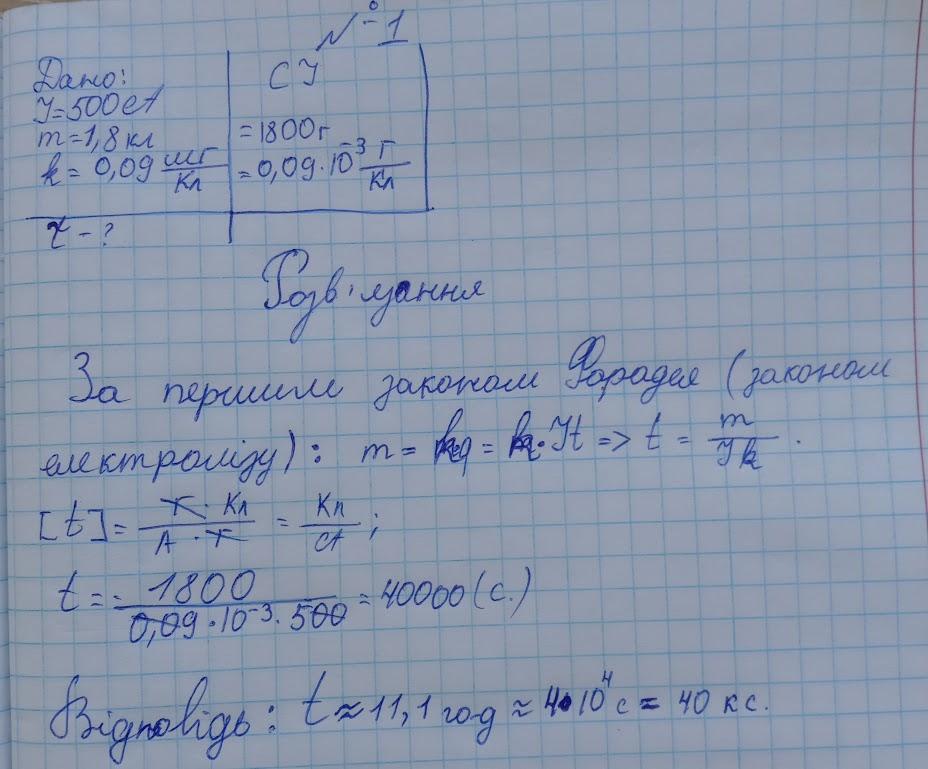 №1
Дано:
I=500A
m=1,8 кл
k=0,09 мг/Кл
t-?
СІ
=1800г
=0,09·10⁻³ г/Кл
Розв'язання
За першим законом Фарадея (законом
електролізу): m = kq = k·It => t = m/Ik.
[t] = г·Кл/А·г = Кл/А;
t = 1800/0,09·10⁻³·500 = 40000 (с.)
Відповідь: t≈11,1 год ≈ 4·10⁴ с = 40 кс.